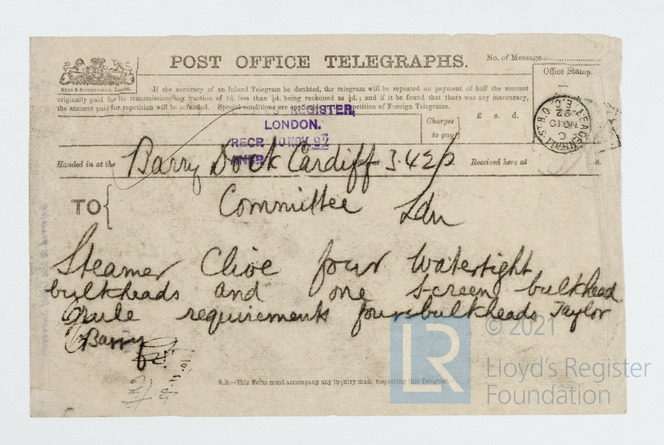 POST OFFICE TELEGRAPHS.
No. of Message
If the accuracy of an Inland Telegram be doubted, the telegram will be repeated on payment of half the amount
originally paid for its transmission, any fraction of 1d. less than ½d. being reckoned as ½d.; and if it be found that there was any inaccuracy,
the amount paid for repetition will be refunded. Special conditions are applicable to the repetition of Foreign Telegrams.
Office Stamp.
REGISTER,
LONDON.
RECR 10 NOV. 92
Charges
to pay
£ s. d.
LEADENHALL ST. B.O. E.C.
C
NO 10
92
Handed in at the
Barry Dock Cardiff 3.42 p
Received here at
TO
Committee Ldn
Steamer Clive four watertight
bulkheads and one screen bulkhead
rule requirements four bulkheads Taylor
Barry
N.B.—This Form must accompany any inquiry made respecting this Telegram.
© 2021
LR
Lloyd's Register
Foundation